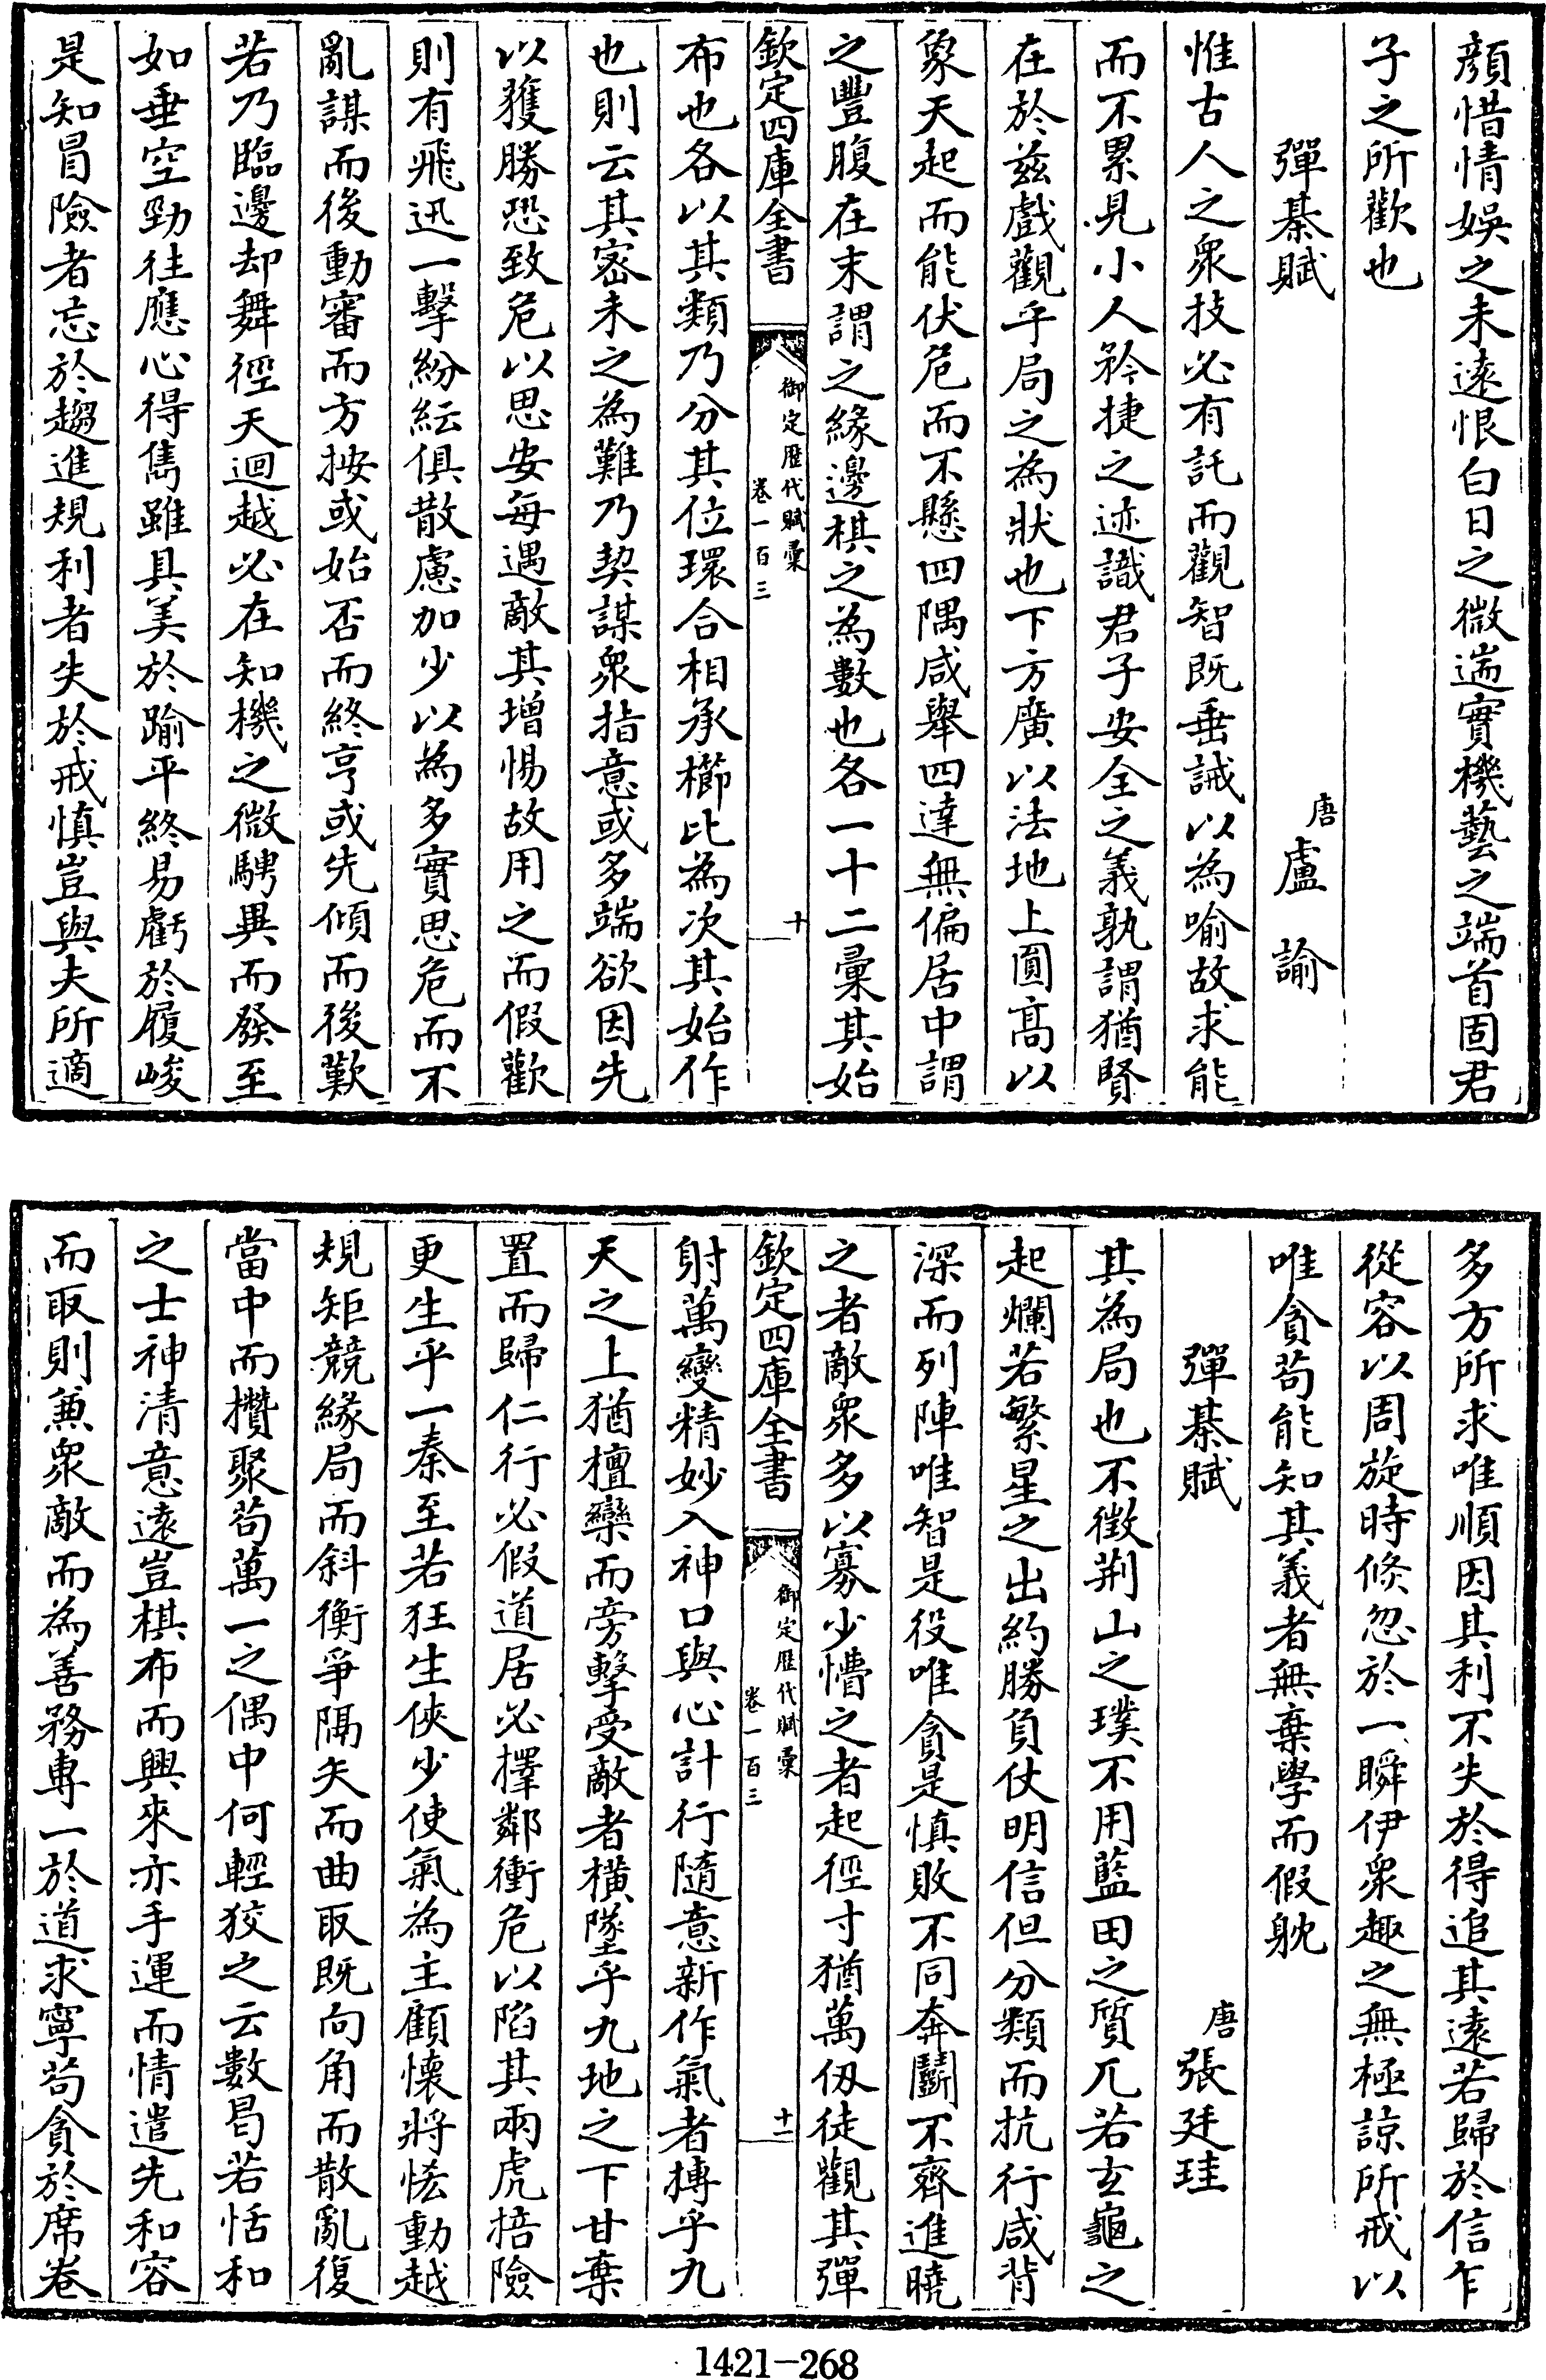 顔惜情娛之未遠恨白日之微遄實機藝之端首固君
子之所歡也
彈棊賦
唐盧諭
惟古人之衆技必有託而觀智既垂誡以為喻故求能
而不累見小人矜捷之迹識君子安全之義孰謂猶賢
在於兹戲觀乎局之為狀也下方廣以法地上圓髙以
象天起而能伏危而不懸四隅咸舉四達無偏居中謂
之豐腹在末謂之緣邊棋之為數也各一十二彙其始
欽定四庫全書
御定歴代賦彙
卷一百三
十
布也各以其類乃分其位環合相承櫛比為次其始作
也則云其宻未之為難乃契謀衆指意或多端欲因先
以獲勝恐致危以思安每遇敵其增惕故用之而假歡
則有飛迅一擊紛紜俱散慮加少以為多實思危而不
亂謀而後動審而方按或始否而終亨或先傾而後歎
若乃臨邊却舞徑天迴越必在知機之微騁異而發至
如垂空勁往應心得雋雖具美於踰平終易虧於履峻
是知冒險者忘於趨進規利者失於戒慎豈與夫所適
多方所求唯順因其利不失於得追其遠若歸於信乍
從容以周旋時倐忽於一瞬伊衆趣之無極諒所戒以
唯貪苟能知其義者無棄學而假躭
彈棊賦
唐張廷珪
其為局也不徴荆山之璞不用藍田之質兀若玄龜之
起爛若繁星之出約勝負仗明信但分類而抗行咸背
深而列陣唯智是役唯貪是慎敗不同奔鬭不齊進曉
之者敵衆多以寡少懵之者起徑寸猶萬仭徒觀其彈
欽定四庫全書
御定歴代賦彙
卷一百三
十一
射萬變精妙入神口與心計行隨意新作氣者摶乎九
天之上猶檀欒而旁擊受敵者横墜乎九地之下甘棄
置而歸仁行必假道居必擇鄰衝危以陷其兩虎掊險
更生乎一秦至若狂生俠少使氣為主顧懷將恡動越
規矩競緣局而斜衡爭隔矢而曲取既向角而散亂復
當中而攢聚苟萬一之偶中何輕狡之云數曷若恬和
之士神清意遠豈棋布而興來亦手運而情遣先和容
而取則兼衆敵而為善務專一於道求寧苟貪於席卷
1421-268